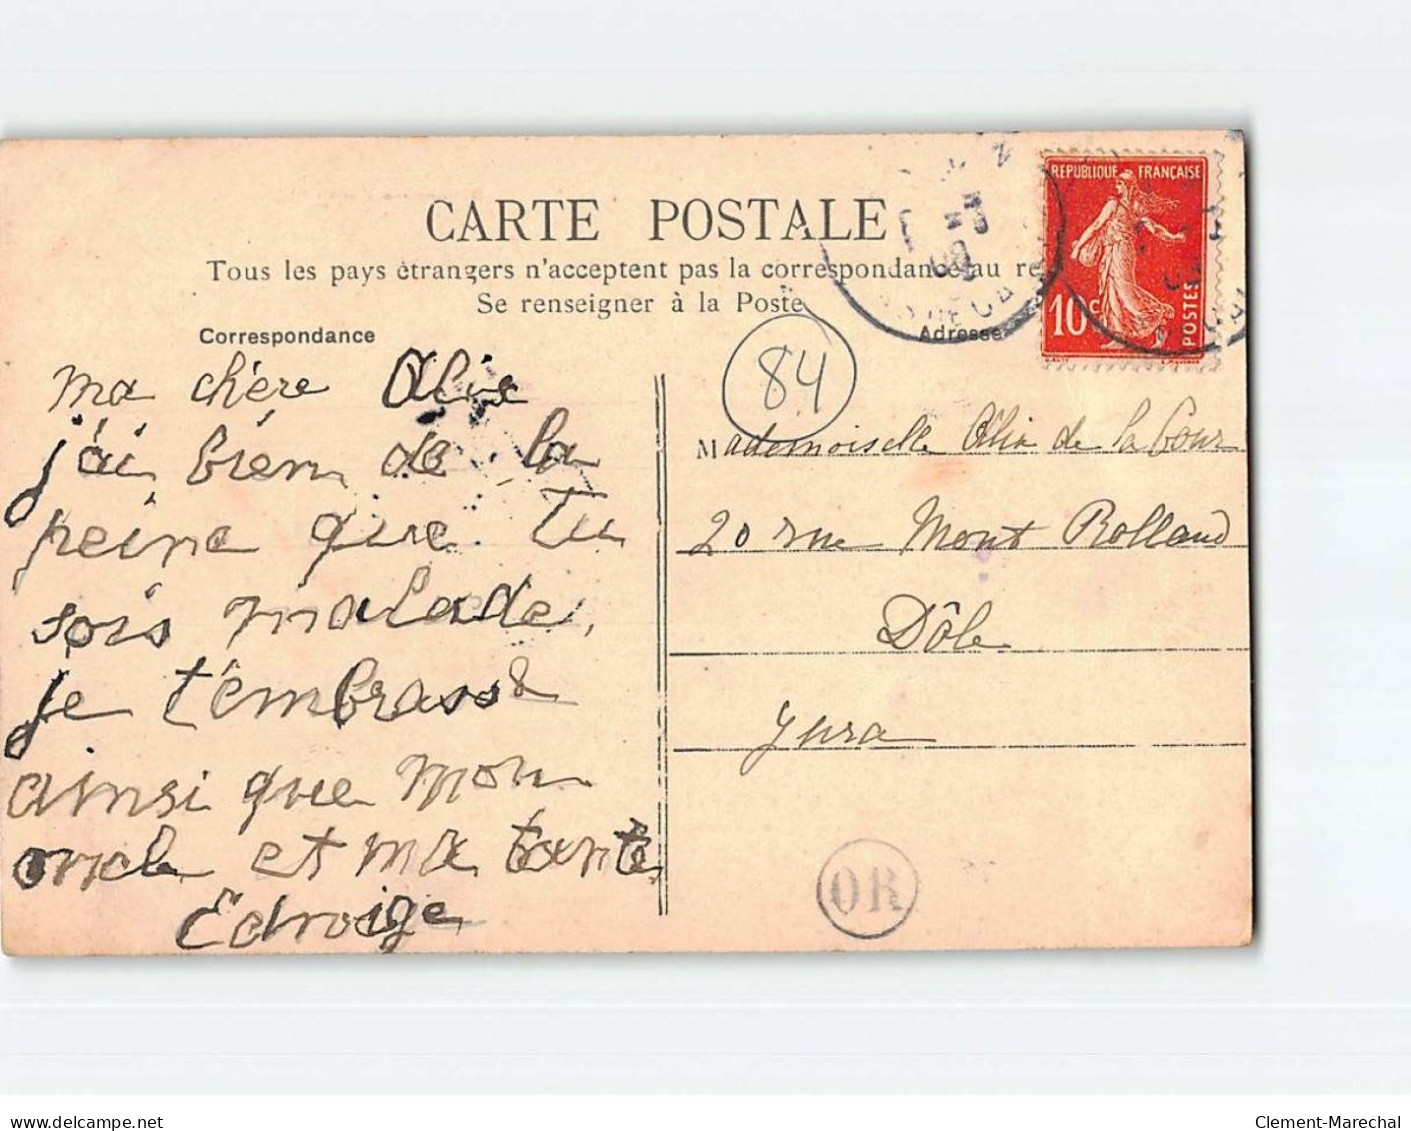 CARTE POSTALE
Tous les pays étrangers n'acceptent pas la correspondance au re
Se renseigner à la Poste
Correspondance
Adresse
REPUBLIQUE FRANÇAISE
10c
POSTES
84
ma chère Alix
j'ai bien de la
peine que tu
sois malade,
je t'embrasse
ainsi que mon
oncle et ma tante
Edwige
Mademoiselle Alix de la Cour
20 rue Mont Rolland
Dôle
Jura
OR
delcampe.net
Clement-Marechal